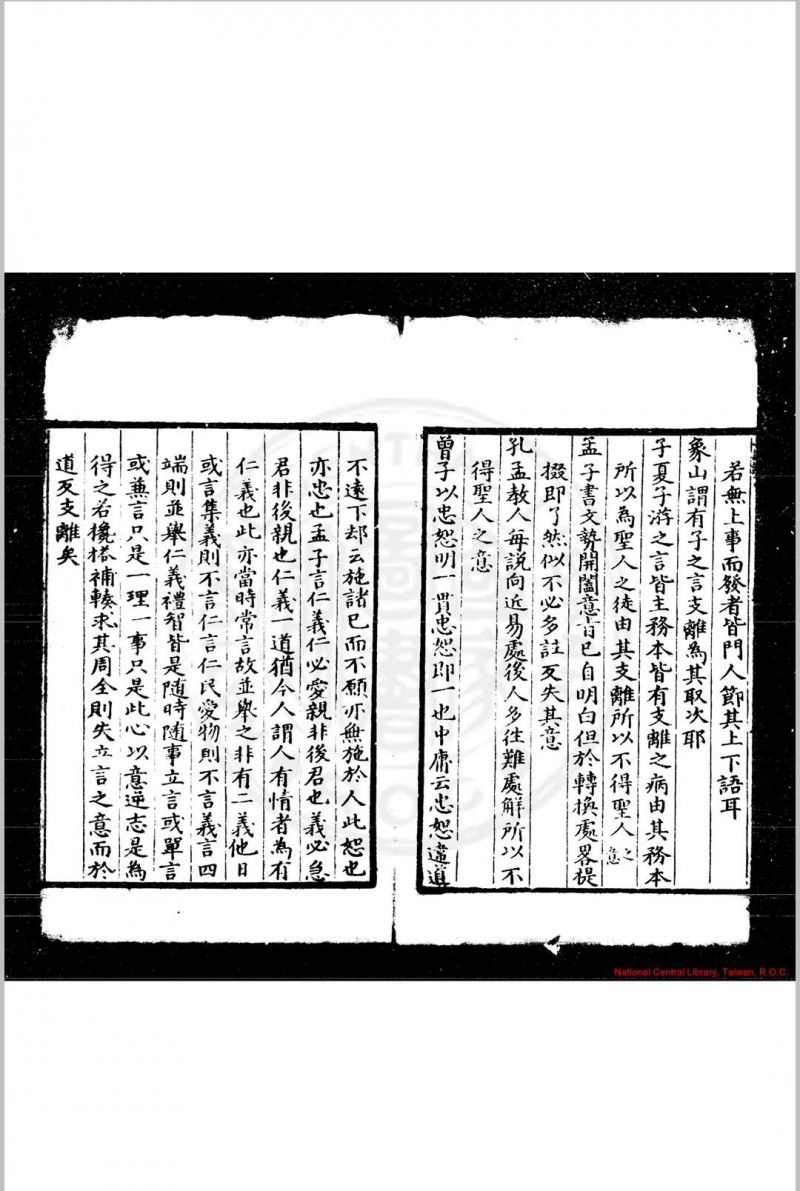 若無上事而發者皆門人節其上下語耳
象山謂有子之言支離為其取次耶
子夏子游之言皆主務本皆有支離之病由其務本
所以為聖人之徒由其支離所以不得聖人之意
孟子書文勢開闔意旨已自明白但於轉換處畧提
掇即了然似不必多註反失其意
孔孟教人每說向近易處後人多往難處解所以不
得聖人之意
曾子以忠恕明一貫忠恕即一也中庸云忠恕違道
不遠下却云施諸己而不願亦無施於人此恕也
亦忠也孟子言仁義仁必愛親非後君也義必急
君非後親也仁義一道猶今人謂人有情者為有
仁義也此亦當時常言故並舉之非有二義他日
或言集義則不言仁言仁民愛物則不言義言四
端則並舉仁義禮智皆是隨時隨事立言或單言
或兼言只是一理一事只是此心以意逆志是為
得之若攙搭補輳求其周全則失立言之意而於
道反支離矣
National Central Library, Taiwan, R.O.C.